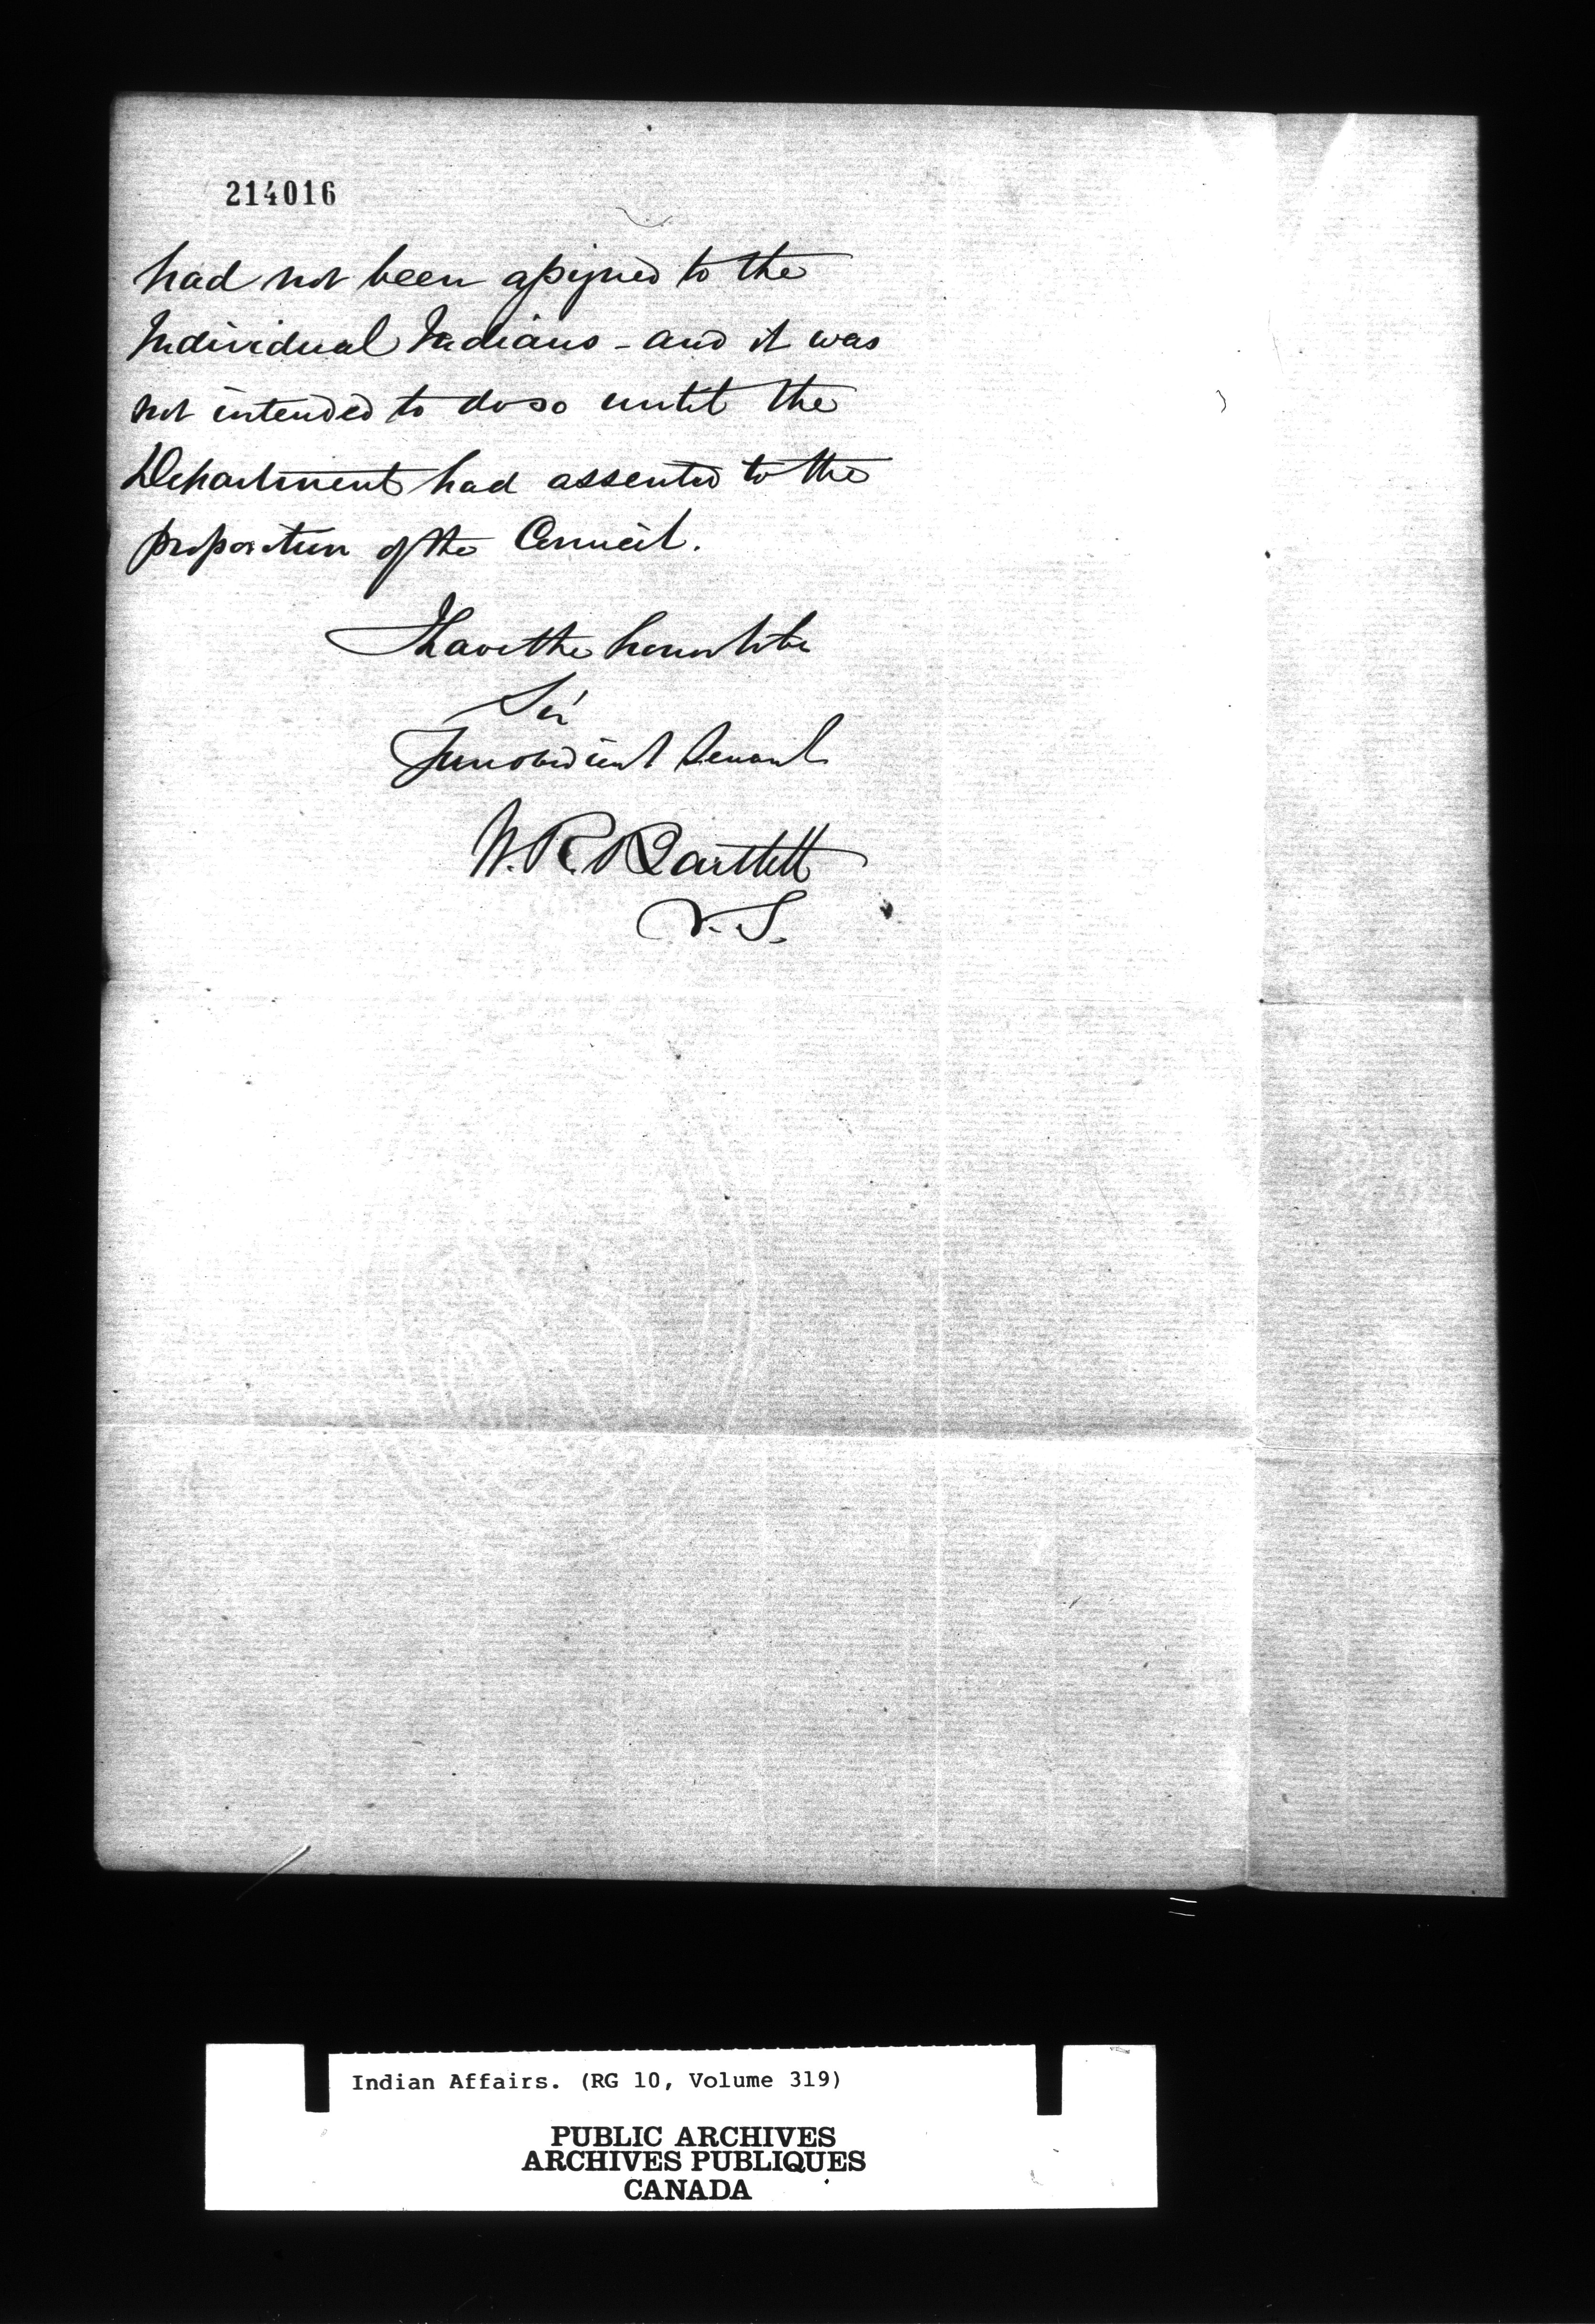 214016
had not been assigned to the
Individual Indians - and it was
not intended to do so until the
Department had assented to the
proposition of the Council.
I have the honor to be
Sir
Your obedient Servant
W. R. Bartlett
V. S.
Indian Affairs. (RG 10, Volume 319)
PUBLIC ARCHIVES
ARCHIVES PUBLIQUES
CANADA